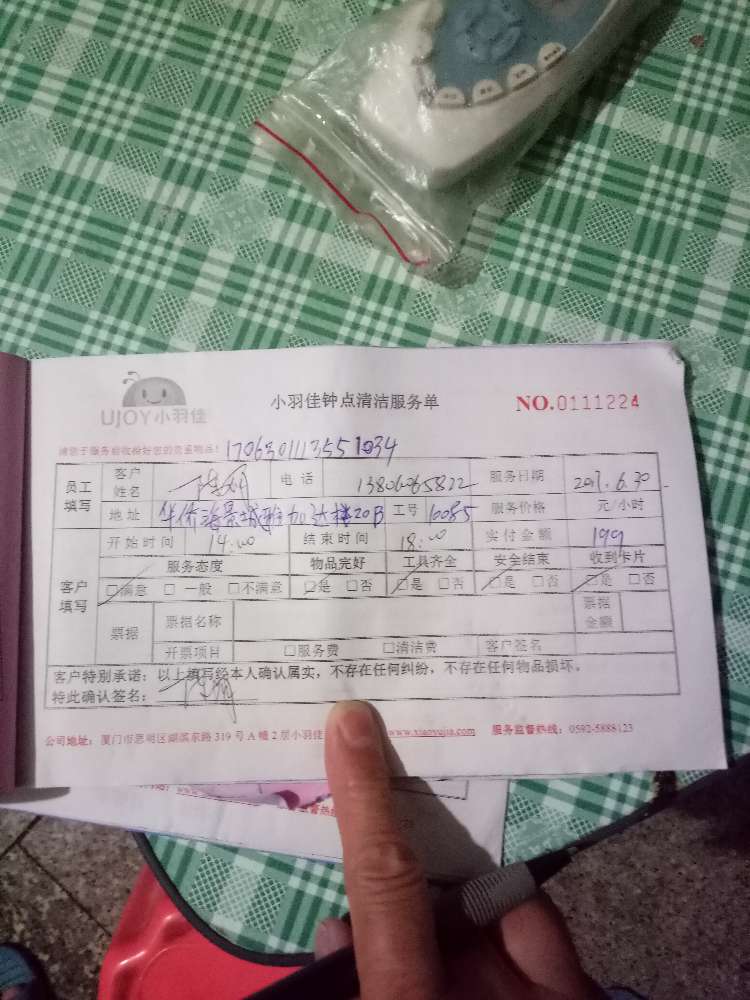 UJOY小羽佳
小羽佳钟点清洁服务单
NO.0111224
请您于服务前收拾好您的贵重物品!
1706301113551034
员工填写 客户姓名 电话 13806065822 服务日期 2017.6.30
地址 华侨海景城雅加达楼20B 工号 10085 服务价格 元/小时
开始时间 14:00 结束时间 18:00 实付金额 199
客户填写 服务态度 物品完好 工具齐全 安全结束 收到卡片
□满意 □一般 □不满意 □是 □否 □是 □否 □是 □否 □是 □否
票据 票据名称 票据金额
开票项目 □服务费 □清洁费 客户签名
客户特别承诺:以上填写经本人确认属实,不存在任何纠纷,不存在任何物品损坏。
特此确认签名:
公司地址:厦门市思明区湖滨东路319号A幢2层小羽佳 www.xiaoyujia.com 服务监督热线:0592-5888123